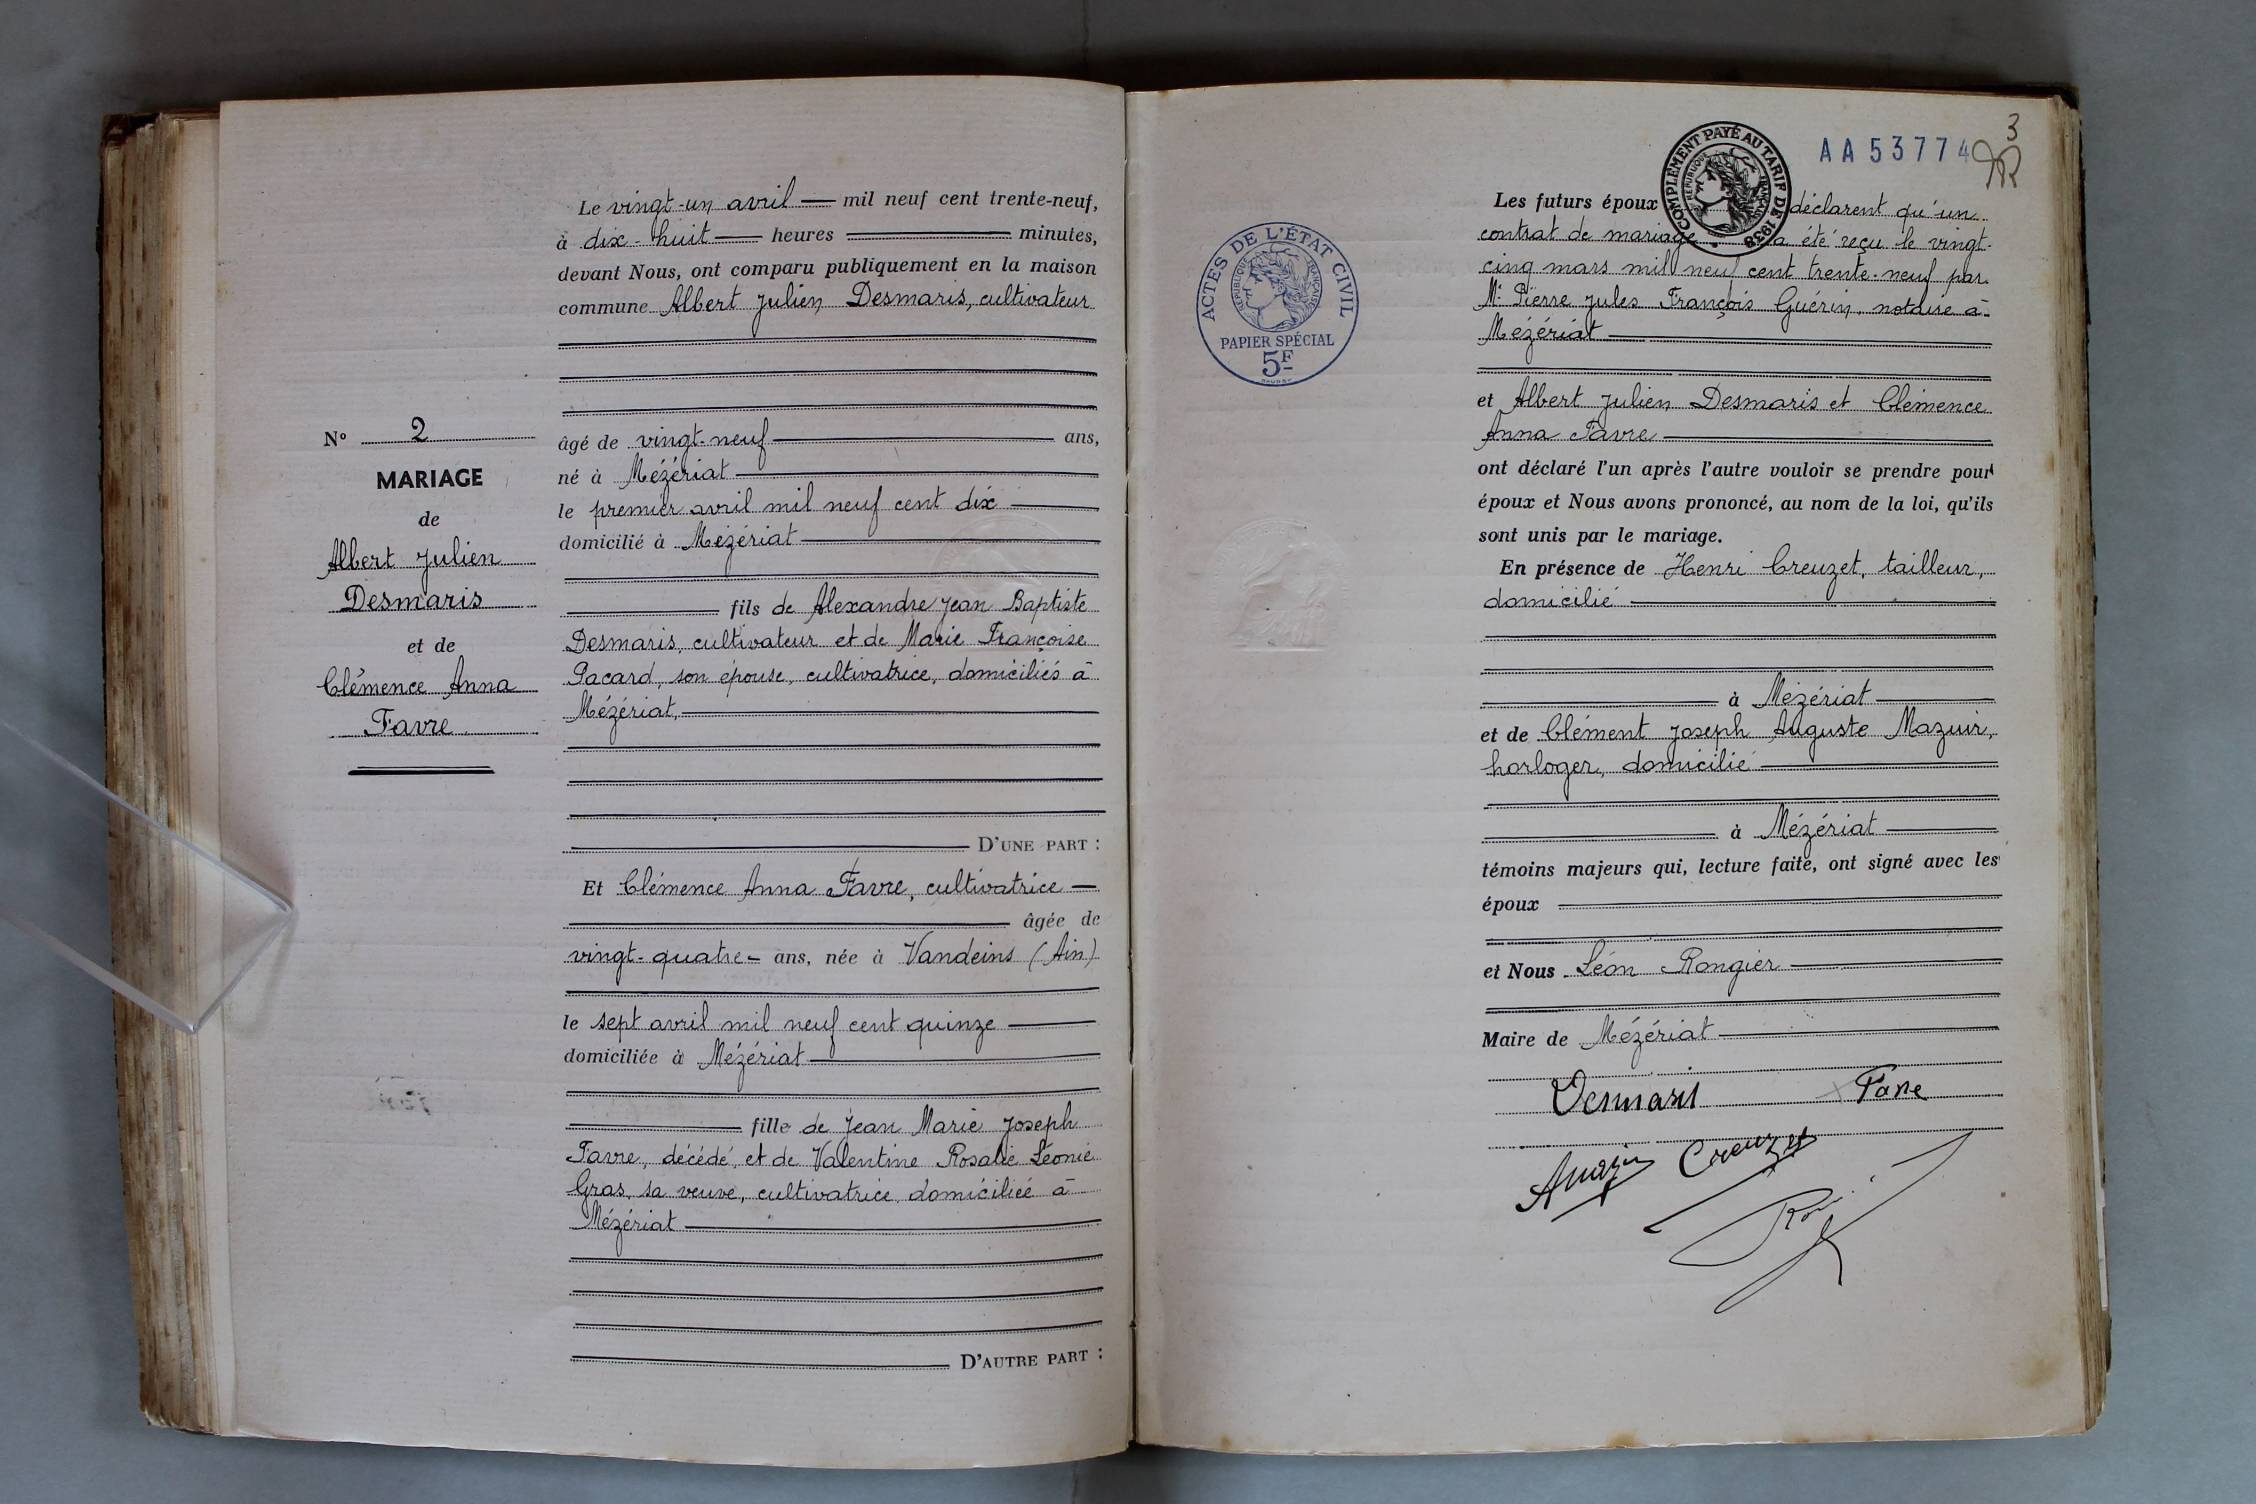 Le vingt-un avril — mil neuf cent trente-neuf,
à dix-huit — heures — minutes,
devant Nous, ont comparu publiquement en la maison
commune Albert Julien Desmaris, cultivateur
N° 2
MARIAGE
de
Albert Julien
Desmaris
et de
Clémence Anna
Favre
âgé de vingt-neuf — ans,
né à Mézériat
le premier avril mil neuf cent dix
domicilié à Mézériat
fils de Alexandre Jean Baptiste
Desmaris, cultivateur et de Marie Françoise
Pacard, son épouse, cultivatrice, domiciliés à
Mézériat,
D'UNE PART :
Et Clémence Anna Favre, cultivatrice —
âgée de
vingt-quatre — ans, née à Vandeins (Ain)
le sept avril mil neuf cent quinze
domiciliée à Mézériat
fille de Jean Marie Joseph
Favre, décédé, et de Valentine Rosalie Léonie
Gras, sa veuve, cultivatrice domiciliée à
Mézériat
D'AUTRE PART :
3
AA53774
COMPLÉMENT PAYÉ AU TARIF DE 1938
RÉPUBLIQUE FRANÇAISE
ACTES DE L'ÉTAT CIVIL
RÉPUBLIQUE FRANÇAISE
PAPIER SPÉCIAL
5F
Les futurs époux déclarent qu'un
contrat de mariage a été reçu le vingt-
cinq mars mil neuf cent trente-neuf par
Me Pierre Jules François Guérin, notaire à
Mézériat
et Albert Julien Desmaris et Clémence
Anna Favre
ont déclaré l'un après l'autre vouloir se prendre pour
époux et Nous avons prononcé, au nom de la loi, qu'ils
sont unis par le mariage.
En présence de Henri Creuzet, tailleur,
domicilié
à Mézériat
et de Clément Joseph Auguste Mazuir,
horloger, domicilié
à Mézériat
témoins majeurs qui, lecture faite, ont signé avec les
époux
et Nous Léon Rongier
Maire de Mézériat
Desmaris Favre
AMazuir Creuzet